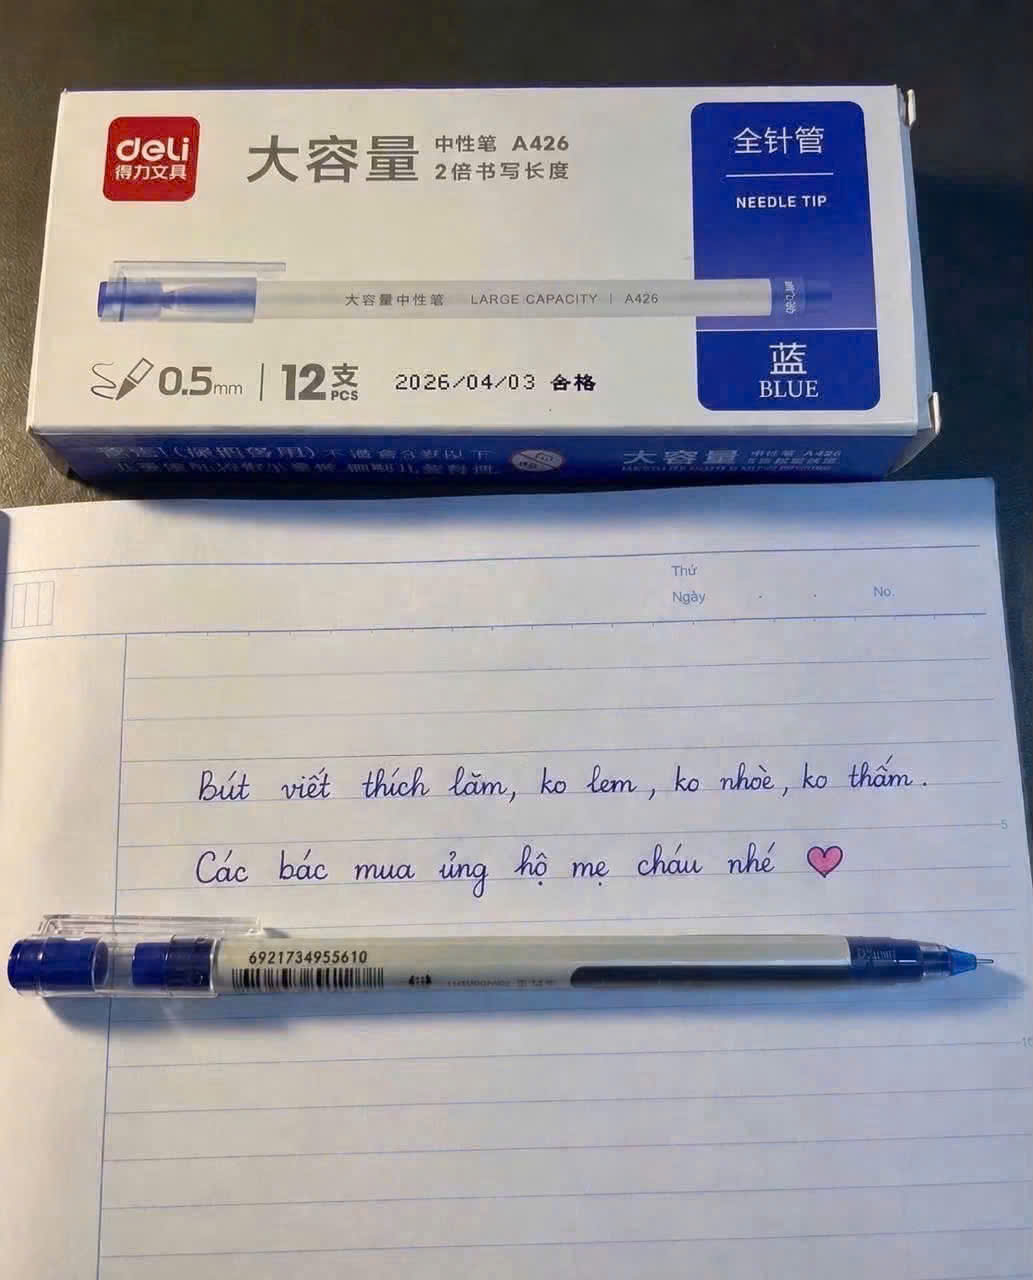 deli
得力文具
大容量
中性笔 A426
2倍书写长度
全针管
NEEDLE TIP
大容量中性笔 LARGE CAPACITY | A426
0.5mm | 12支 PCS
2026/04/03 合格
蓝
BLUE
大容量 中性笔 A426
Thứ
Ngày . . No.
Bút viết thích lăm, ko lem, ko nhoè, ko thấm.
5
Các bác mua ủng hộ mẹ cháu nhé
6921734955610
10